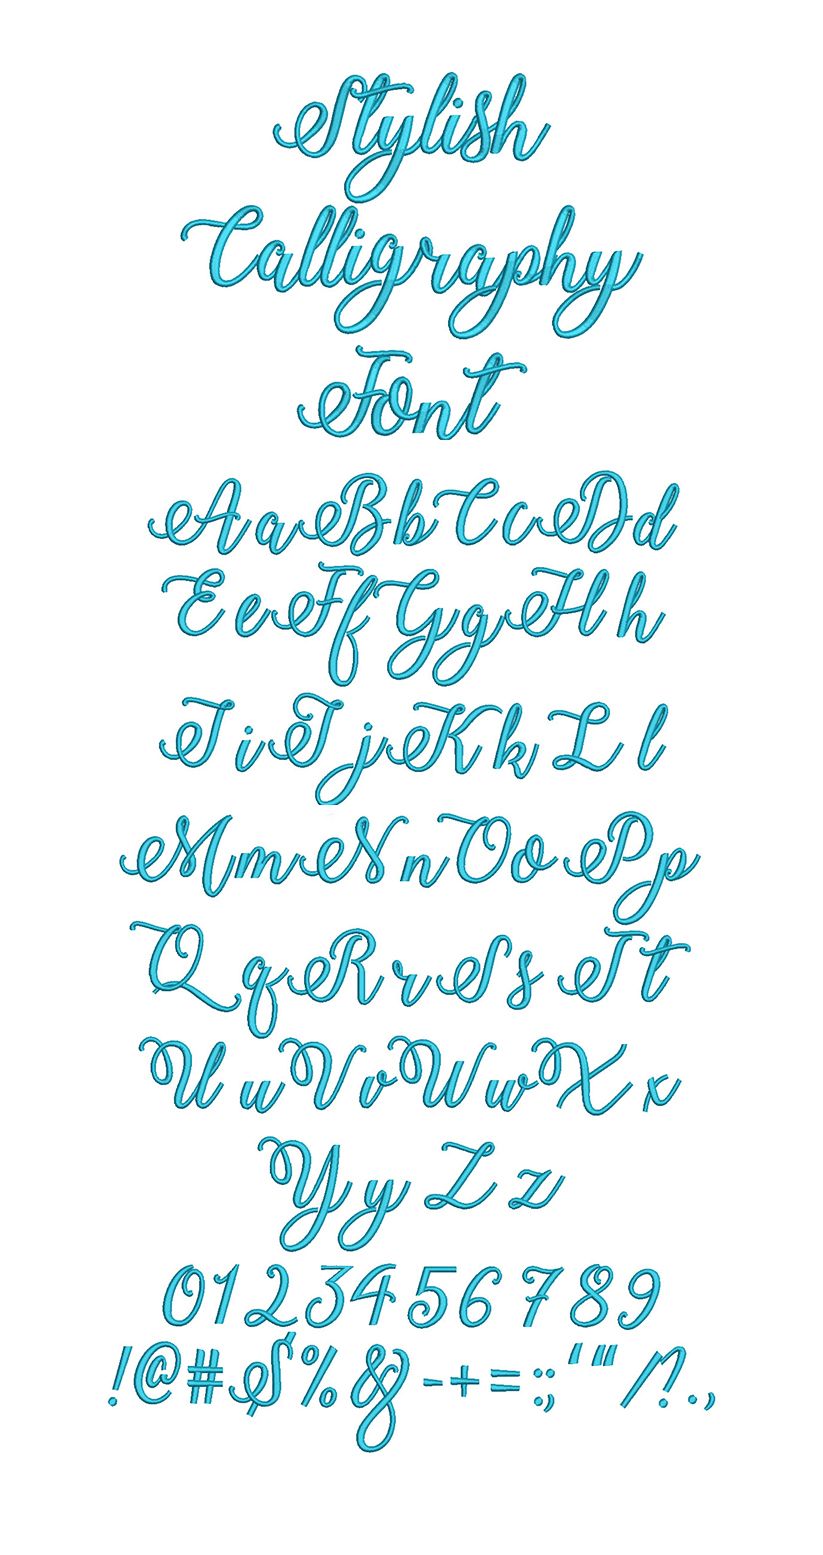 Stylish
Calligraphy
Font
Aa Bb Cc Dd
Ee Ff Gg Hh
Ii Jj Kk Ll
Mm Nn Oo Pp
Qq Rr Ss Tt
Uu Vv Ww Xx
Yy Zz
0123456789
!@#$%&-+=:;'"/?.,